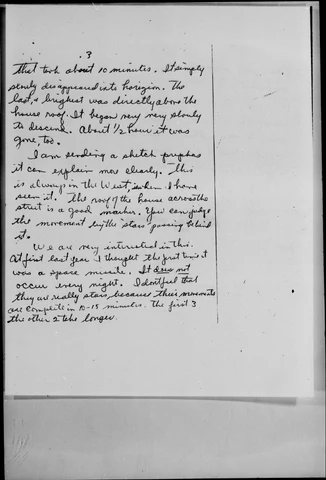 3
that took about 10 minutes. It simply
slowly disappeared into horizon. The
last, & brightest was directly above the
house roof. It began very very slowly
to descend. About 1/2 hour it was
gone, too.
I am sending a sketch prephas
it can explain more clearly. This
is always in the West, when I have
seen it. The roof of the house across the
street is a good marker. You can judge
the movement by the "stars" passing behind
it.
We are very interested in this.
At first last year I thought the first time it
was a space missile. It does not
occur every night. I don't feel that
they are really stars because their movements
are complete in 10-15 minutes. The first 3
the other 2 take longer.